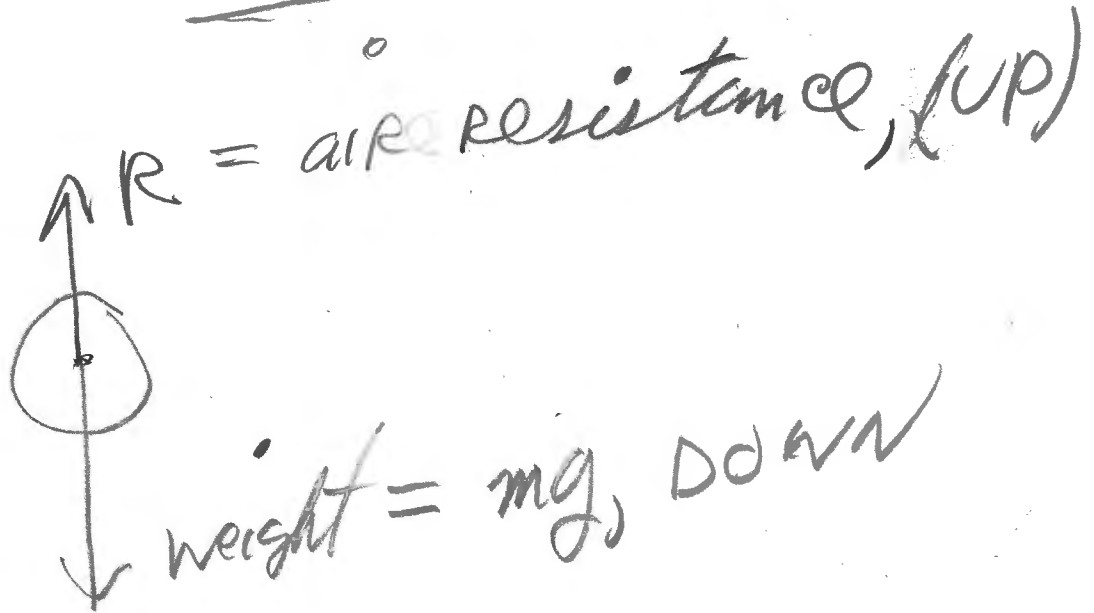 R = air resistance, (UP)
weight = mg, DOWN